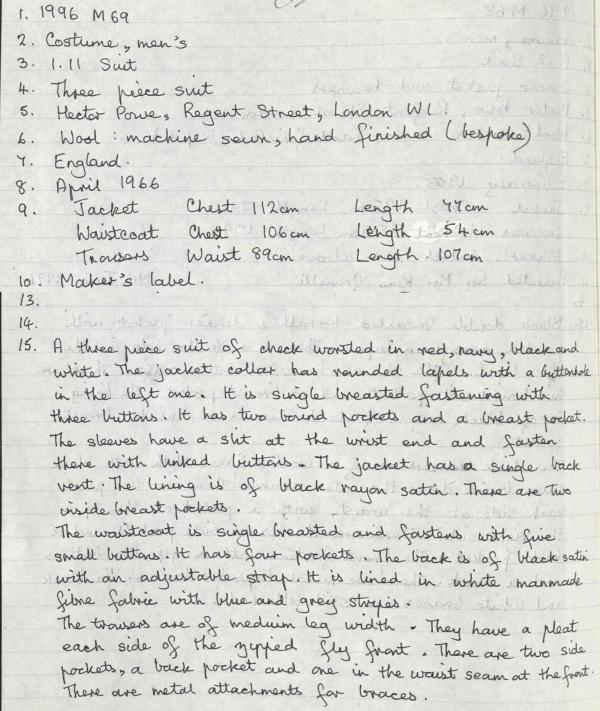 1. 1996 M69
2. Costume, men's
3. 1.11 Suit
4. Three piece suit
5. Hector Powe, Regent Street, London W1.
6. Wool: machine sewn, hand finished (bespoke)
7. England.
8. April 1966
9. Jacket Chest 112cm Length 77cm
Waistcoat Chest 106cm Length 54cm
Trousers Waist 89cm Length 107cm
10. Maker's label.
13.
14.
15. A three piece suit of check worsted in red, navy, black and
white. The jacket collar has rounded lapels with a buttonhole
in the left one. It is single breasted fastening with
three buttons. It has two bound pockets and a breast pocket.
The sleeves have a slit at the wrist end and fasten
there with linked buttons. The jacket has a single back
vent. The lining is of black rayon satin. There are two
inside breast pockets.
The waistcoat is single breasted and fastens with five
small buttons. It has four pockets. The back is of black satin
with an adjustable strap. It is lined in white manmade
fibre fabric with blue and grey stripes.
The trousers are of meduim leg width. They have a pleat
each side of the zipped fly front. There are two side
pockets, a back pocket and one in the waist seam at the front.
There are metal attachments for braces.